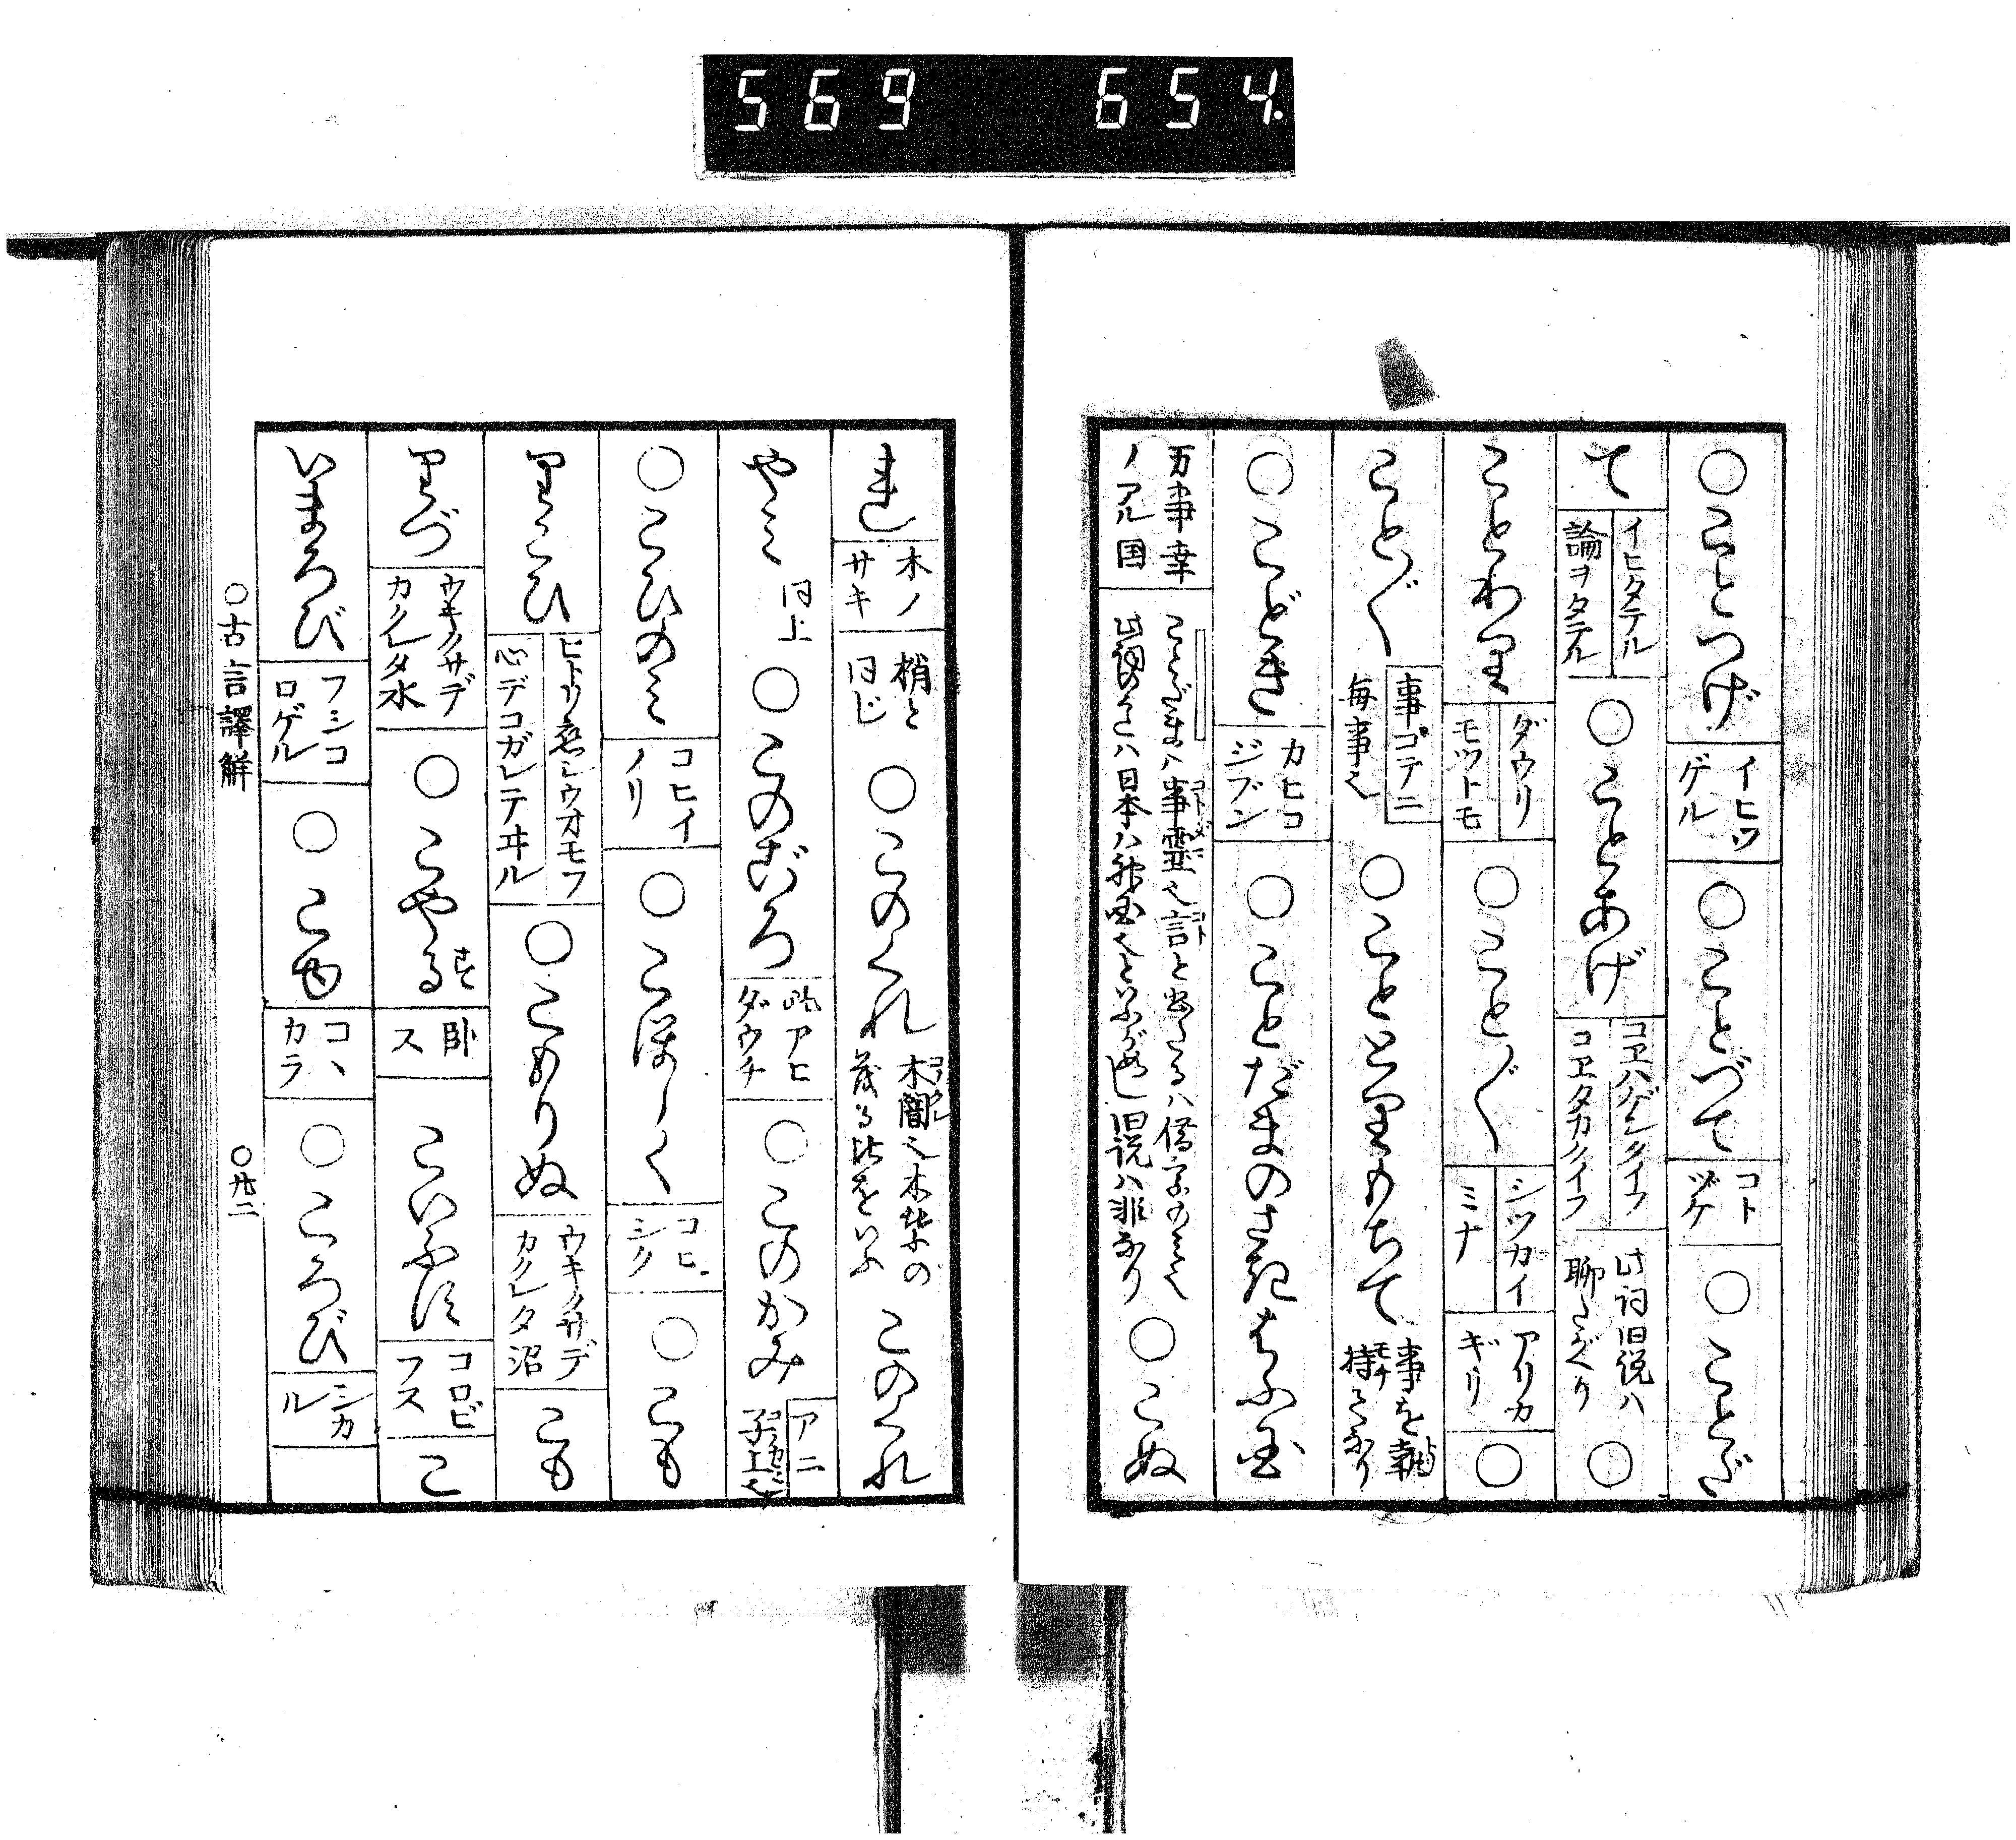 569 654.
○ことつげ イヒツゲル ○ことづて コトツケ ○ことだ
て イヒタテル 論ヲタテル ○ことあげ コヱハゲシクイフ コヱタカクイフ 此詞旧説ハ聊たがへり ○
ことわり ダウリ モツトモ ○こと〴〵 シツカイ ミナ アリカギリ ○
こと〴〵 事ゴテニ 毎事也 ○こととりもちて 事を執持也なり
○こどき カヒコジブン ○ことだまのさきはふ国
万事幸ノアル国 ことだまハ事霊也言と書たるハ借字のみ也 此詞のこゝろハ日本ハ神国也といふがめし旧説ハ非なり ○こぬ
れ 木ノサキ 梢と同じ ○このくれ 木闇也木葉の茂る比をいふ このくれ
やミ 同上 ○このごろ 此アヒダウチ ○このかみ アニ 子上也
○こひのミ コヒイノリ ○こほしく コヒシク ○こも
りこひ ヒトリ恋シウオモフ 心デコガレテヰル ○こもりぬ ウキクサデカクレタ沼 こも
りづ ウキクサデカクレタ水 ○こやるす 臥ス こいふす コロビフス こ
いまろび フシコロゲル ○こゆ コヽカラ ○ころび シカル
○古言譯解 ○廿二